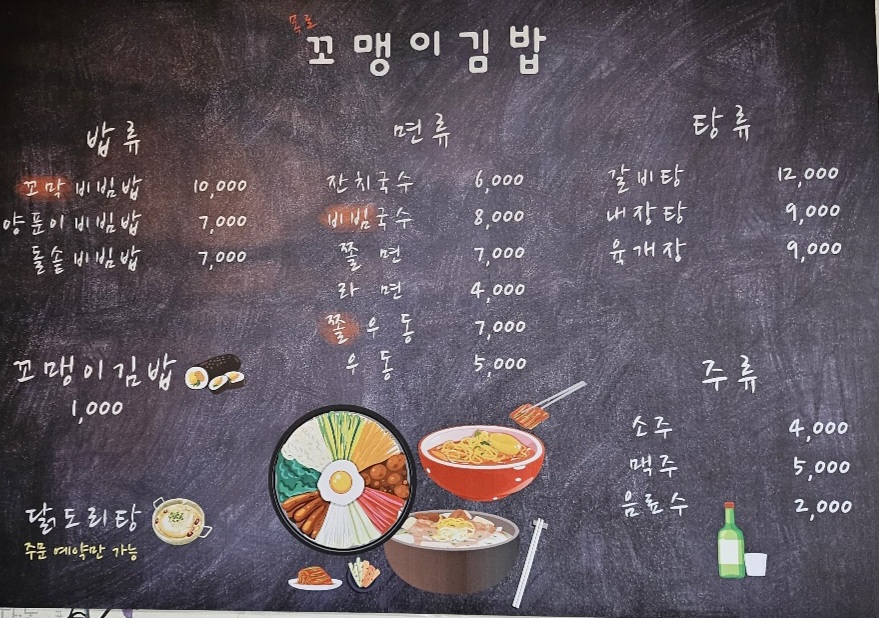 목포
꼬맹이김밥
밥류
꼬막비빔밥 10,000
양푼이비빔밥 7,000
돌솥비빔밥 7,000
꼬맹이김밥
1,000
닭도리탕
주문 예약만 가능
면류
잔치국수 6,000
비빔국수 8,000
쫄 면 7,000
라 면 4,000
쫄우동 7,000
우 동 5,000
탕류
갈비탕 12,000
내장탕 9,000
육개장 9,000
주류
소주 4,000
맥주 5,000
음료수 2,000